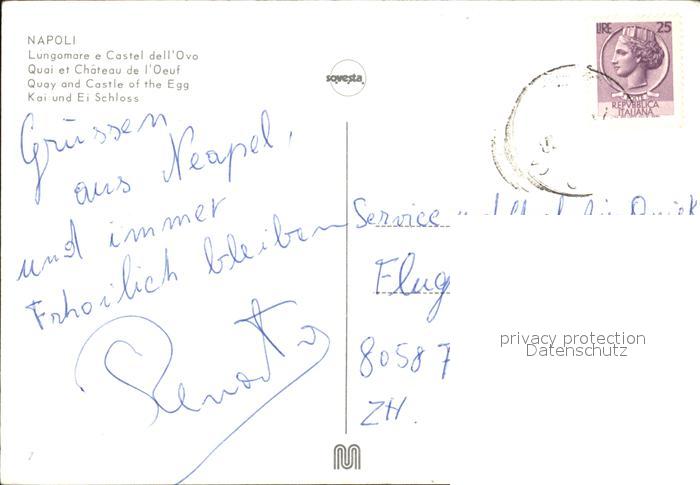 NAPOLI
Lungomare e Castel dell'Ovo
Quai et Château de l'Oeuf
Quay and Castle of the Egg
Kai und Ei Schloss
sovesta
LIRE 25
REPVBBLICA
ITALIANA
Grüssen
aus Neapel,
und immer
Frhoilich bleiben
Renato
Service
Flug
8058
ZH.
privacy protection
Datenschutz